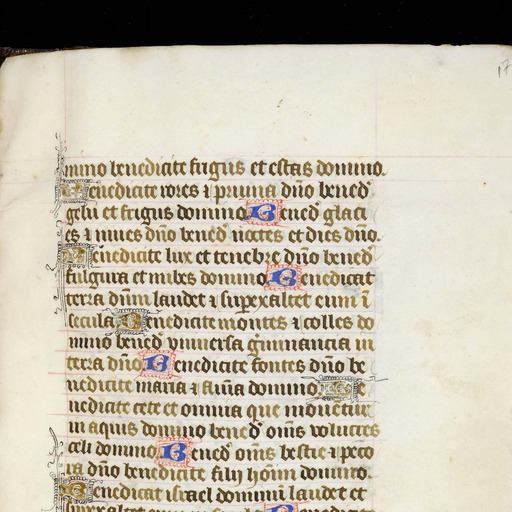 17
mino benedicite frigus et estas domino.
Benedicite rores ⁊ pruina dño bened̄
gelu et frigus domino Bened̄ glaci
es ⁊ niues dño bened̄ noctes et dies dño.
Benedicite lux et tenebre dño bened̄
fulgura et nubes domino Benedicat
terra dñm laudet ⁊ supexaltet eum ī
secula Benedicite montes ⁊ colles do
mino bened̄ vniuersa g̃minancia in
terra dño Benedicite fontes dño be
nedicite maria ⁊ flūia domino Be
nedicite cete et omnia que mouētur
in aquis domino bened̄ om̃s volucres
celi domino Bened̄ om̃s bestie ⁊ peco
ra dño benedicite filij hom̃ domino.
Benedicat israel dominū laudet et
supexaltet eum in secula Benedicite